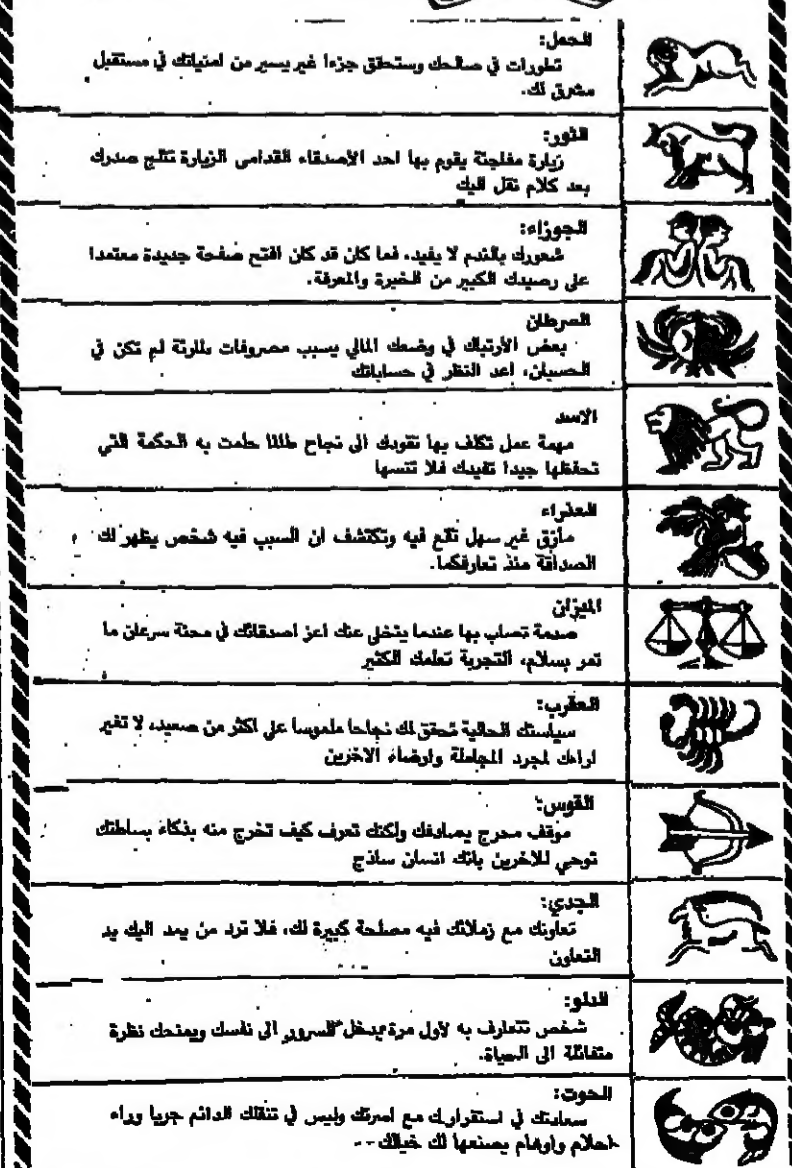 الحمل:
تطورات في صالحك وستحقق جزءا غير يسير من امنياتك في مستقبل
مشرق لك.
الثور:
زيارة مفاجئة يقوم بها احد الأصدقاء القدامى الزيارة تثلج صدرك
بعد كلام نقل اليك
الجوزاء:
شعورك بالندم لا يفيد، فما كان قد كان افتح صفحة جديدة معتمدا
على رصيدك الكبير من الخبرة والمعرفة.
السرطان
بعض الأرتباك في وضعك المالي يسبب مصروفات طارئة لم تكن في
الحسبان، اعد النظر في حساباتك
الاسد
مهمة عمل تكلف بها تقودك الى نجاح طالما حلمت به الحكمة التي
تحفظها جيدا تفيدك فلا تنسها
العذراء
مأزق غير سهل تقع فيه وتكتشف ان السبب فيه شخص يظهر لك
الصداقة منذ تعارفكما.
الميزان
صدمة تصاب بها عندما يتخلى عنك اعز اصدقائك في محنة سرعان ما
تمر بسلام، التجربة تعلمك الكثير
العقرب:
سياستك الحالية تحقق لك نجاحا ملموسا على اكثر من صعيد، لا تغير
اراءك لمجرد المجاملة وارضاء الاخرين
القوس:
موقف محرج يصادفك ولكنك تعرف كيف تخرج منه بذكاء بساطتك
توحي للاخرين بانك انسان ساذج
الجدي:
تعاونك مع زملائك فيه مصلحة كبيرة لك، فلا ترد من يمد اليك يد
التعاون
الدلو:
شخص تتعارف به لأول مرة يدخل السرور الى نفسك ويمنحك نظرة
متفائلة الى الحياة.
الحوت:
سعادتك في استقرارك مع اسرتك وليس في تنقلك الدائم جريا وراء
احلام واوهام يصنعها لك خيالك--